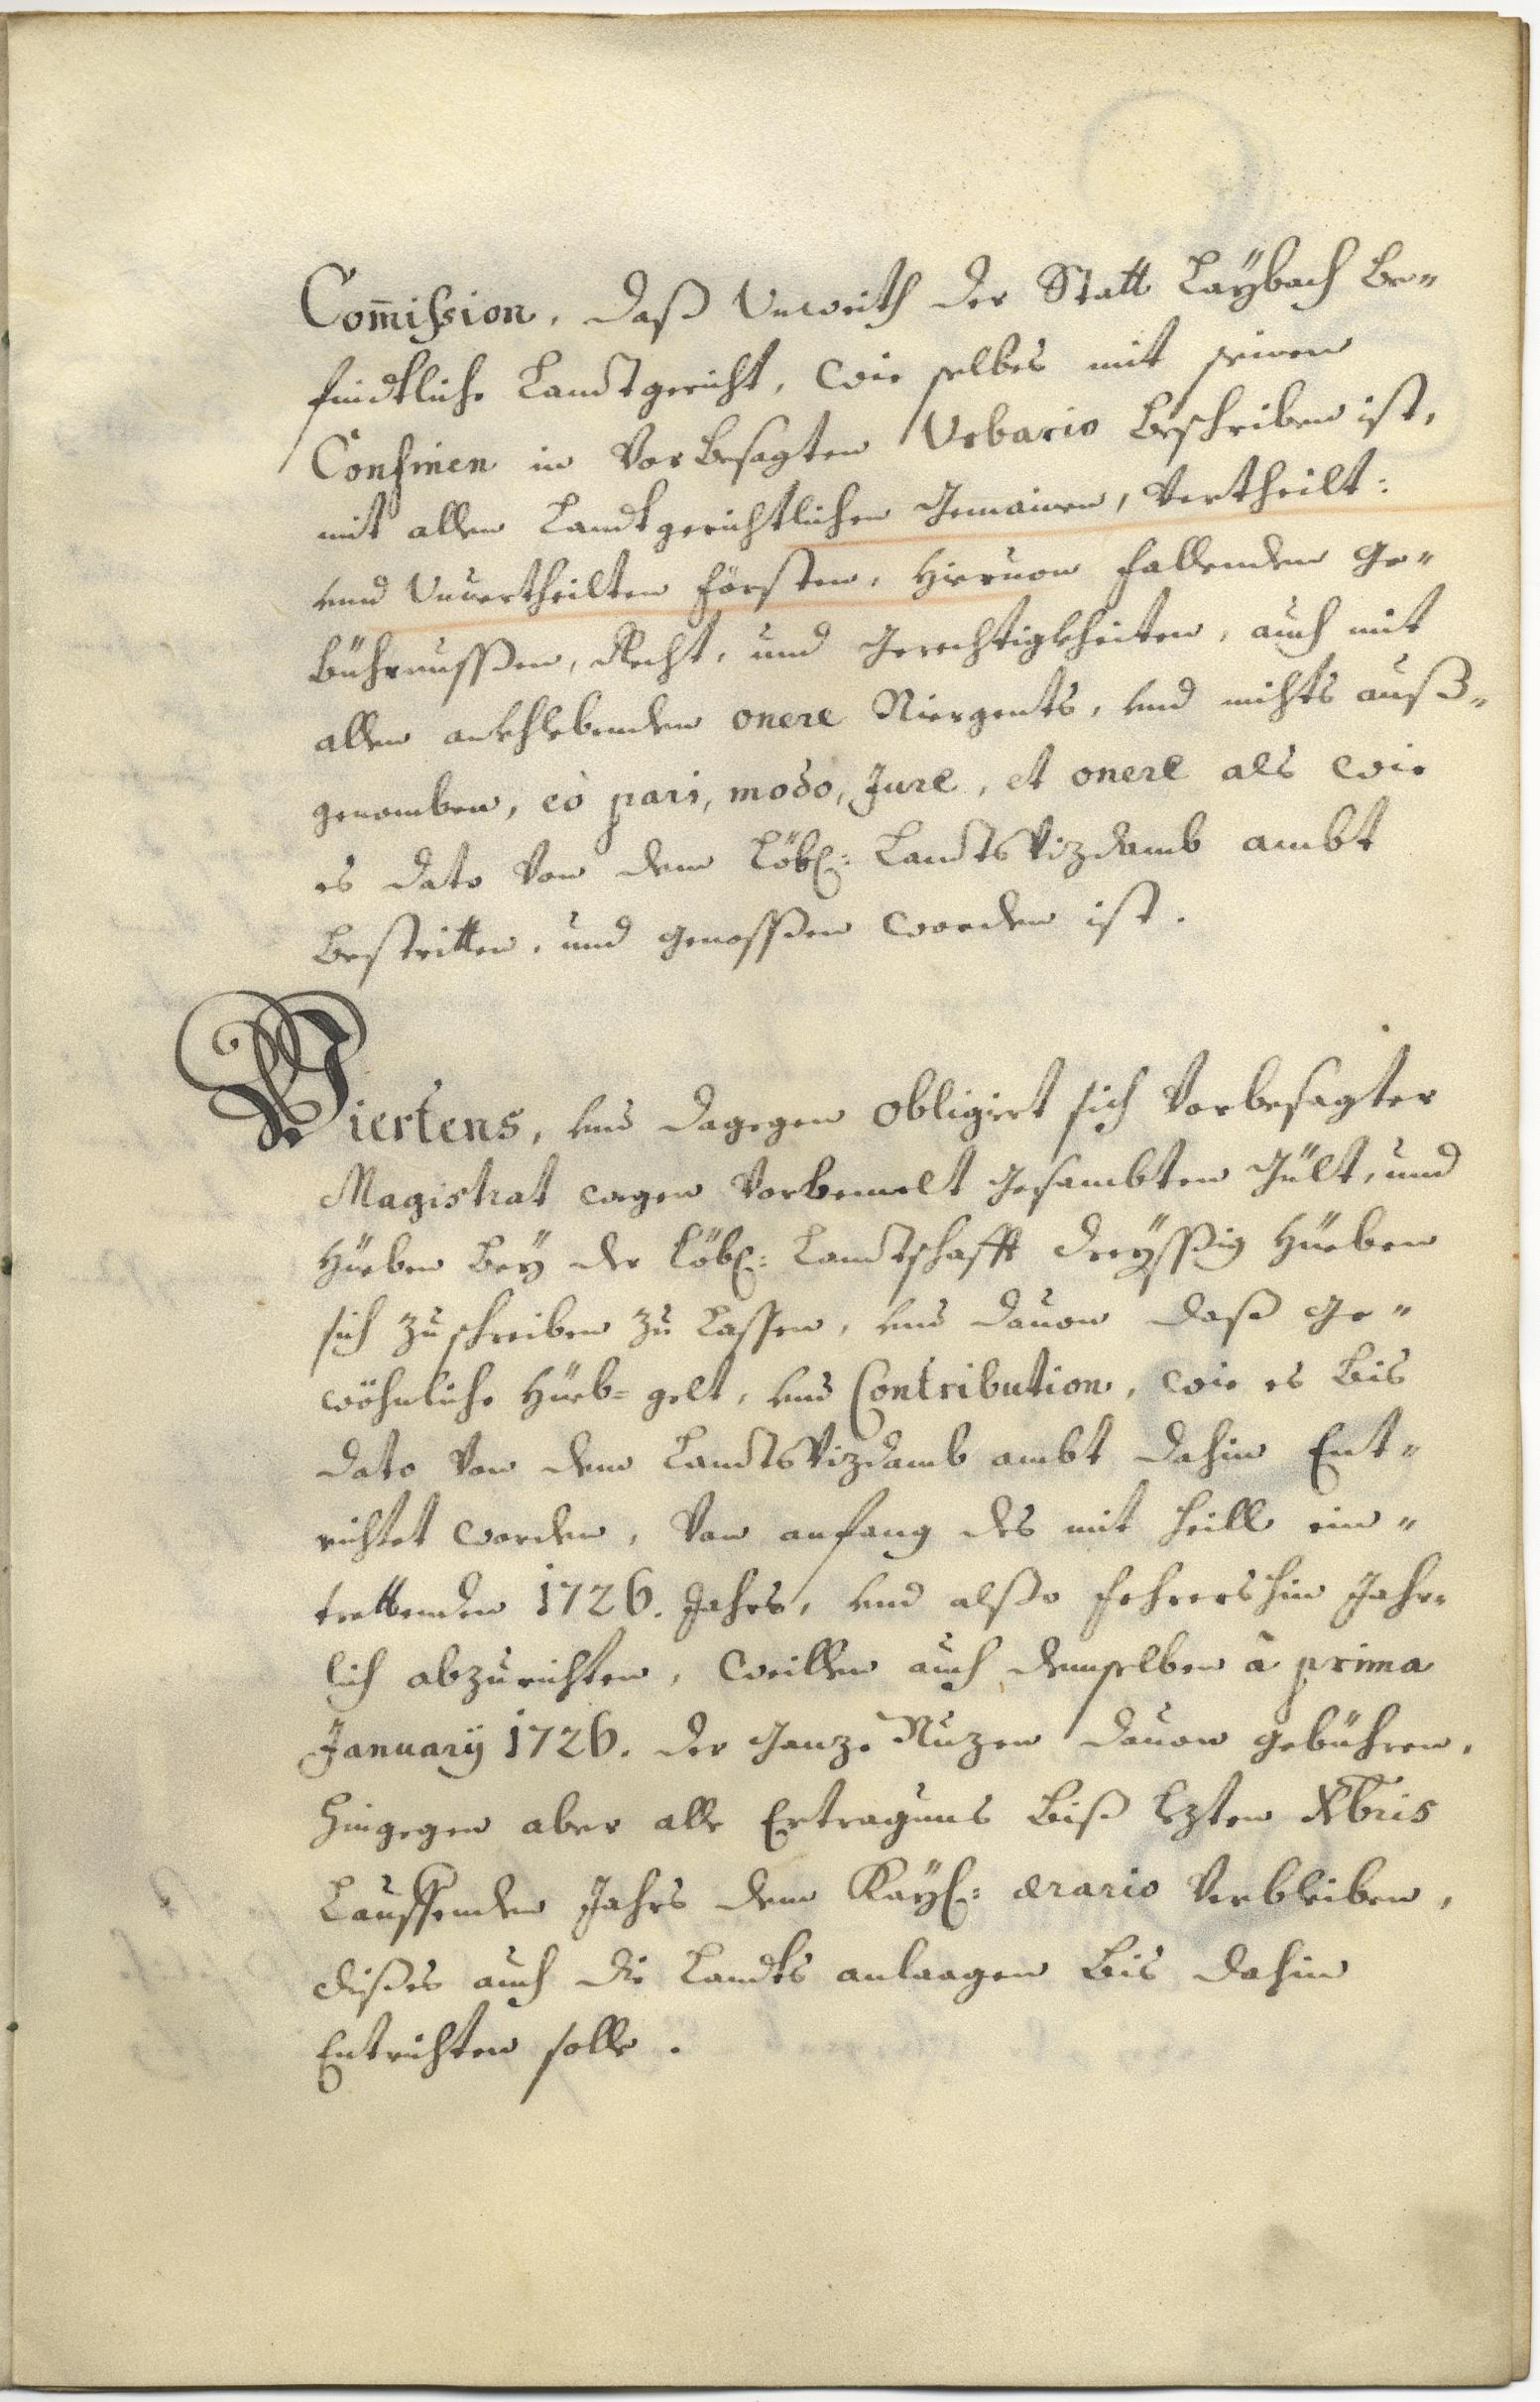 Com̄ission, daß Unweith der Statt Laÿbach be-
findtliche Landtgericht, wie selbes mit seinen
Confinen in Vorbesagten Urbario beschriben ist,
mit allen Landtgerichtlichen Gemainen, Vertheilt:
vnd Unvertheilten försten, hieruon fallenden Ge-
bührnussen, Recht, und Gerechtigkheiten, auch mit
allen ankhlebenden onere Niergents, vnd nichts auß-
genomben, eò pari, modo, Jure, et onere als wie
es dato Von dem Löbl: LandtsVizdamb ambt
bestritten, und genossen worden ist.
Viertens, vnd dagegen obligiert sich Vorbesagter
Magistrat wegen Vorbemelt gesambten Gült, und
Hueben beÿ der Löbl: Landtschafft dreÿssig Hueben
sich zuschreiben zu Lassen, vnd dauon daß Ge-
wöhnliche Hueb= gelt, vnd Contribution, wie es bis
dato Von dem LandtsVizdamb ambt dahin Ent-
richtet worden, Von anfang des mit heill ein-
trettenden 1726. Jahrs, vnd alßo fehrershin Jähr-
lich abzurichten, weillen auch demselben à prima
Januarÿ 1726. der ganze Nuzen dauon gebühren,
hingegen aber alle Ertragnus biß lezten Xbris
Lauffenden Jahrs dem Kaÿl: ærario Verbleiben,
dises auch die Landts anlaagen bis dahin
Entrichten solle.